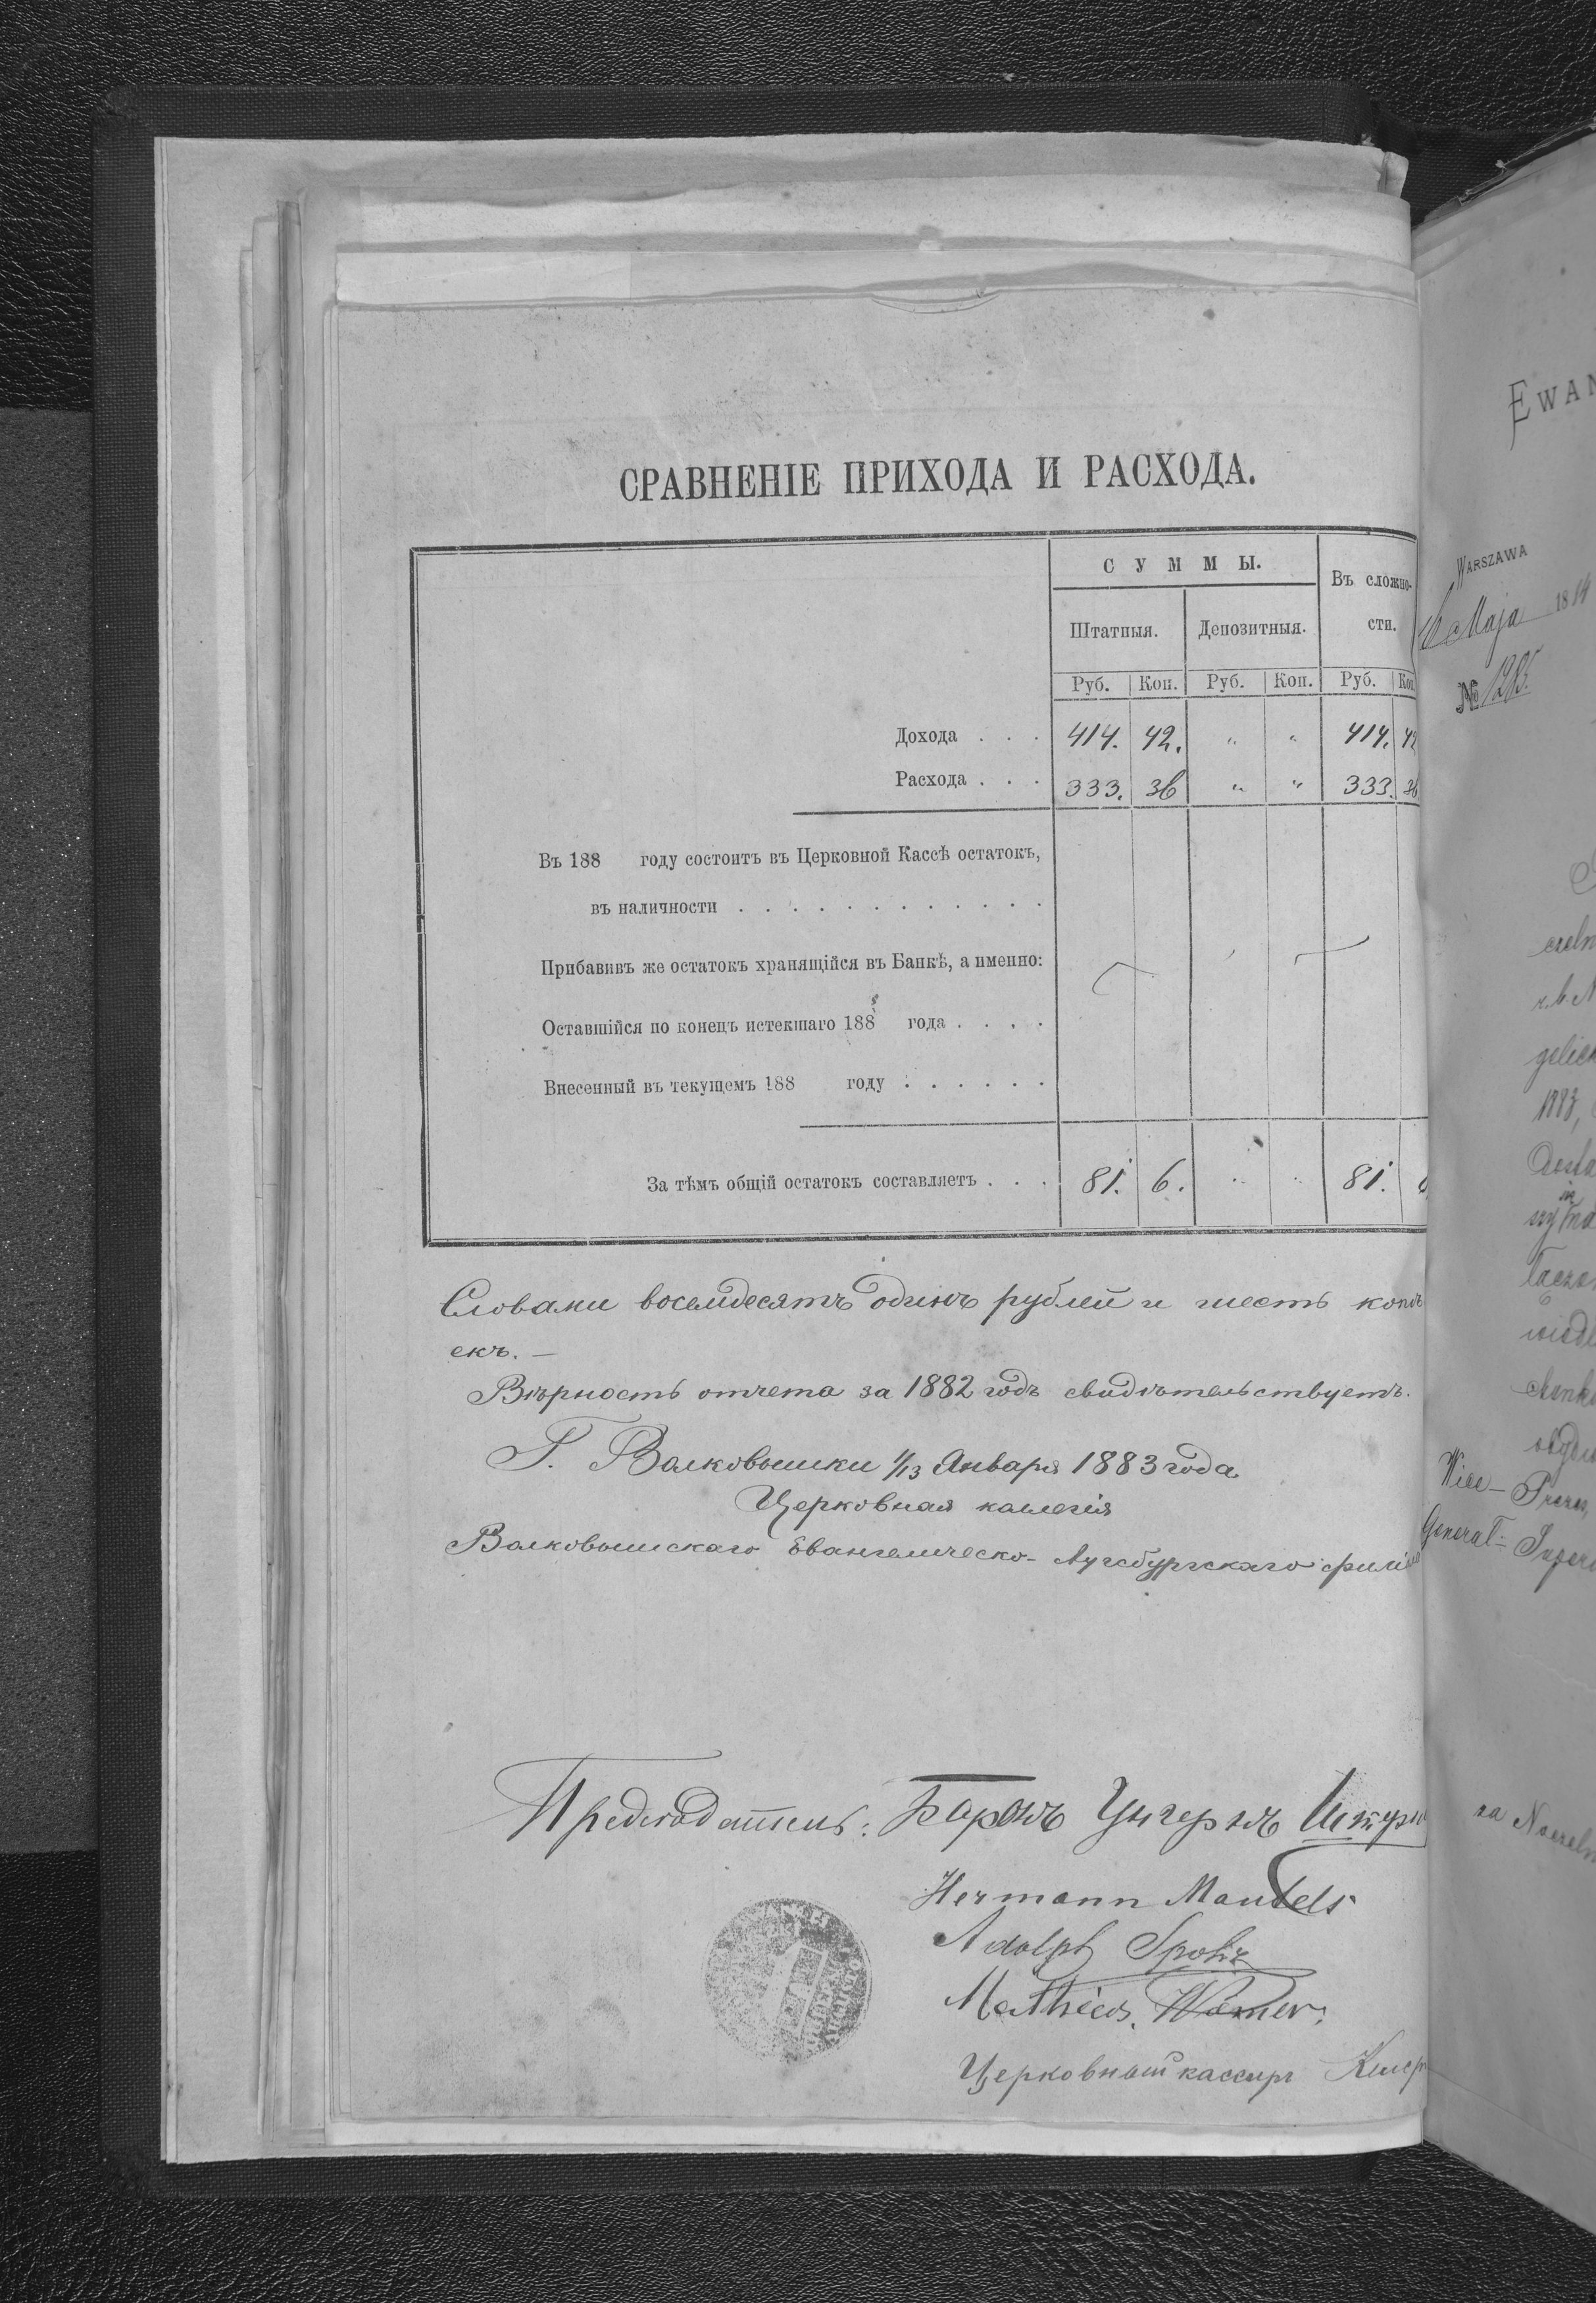 СРАВНЕНІЕ ПРИХОДА И РАСХОДА.
СУММЫ.
Въ сложно-
сти.
Штатныя.
Депозитныя.
Руб. Коп. Руб. Коп. Руб. Коп
Дохода . . . 414. 42. " " 414. 42
Расхода . . . 333. 36 " " 333. 36
Въ 188 году состоитъ въ Церковной Кассѣ остатокъ,
въ наличности . . . . . . . . . . . .
Прибавивъ же остатокъ хранящійся въ Банкѣ, а именно:
Оставшійся по конецъ истекшаго 188 года . . . .
Внесенный въ текущемъ 188 году . . . . . .
За тѣмъ общій остатокъ составляетъ . . . 81. 6. " " 81.
Словами восемдесятъ одинъ рублей и шесть копѣ
екъ. —
Вѣрность отчета за 1882 годъ свидѣтельствуетъ.
Г. Волковышки 1/13 Января 1883 года
Церковная коллегія
Волковышскаго Евангелическо-Аугсбургскаго филіала
Председатель: Баронъ Унгернъ Штерн
Hermann Mandels
Adolph Spohr
Mathias
Церковный кассиръ
EWAN
WARSZAWA
Maja 18
№ 1285.
1883,
Wice- Prezes,
General- Super
za Naczeln